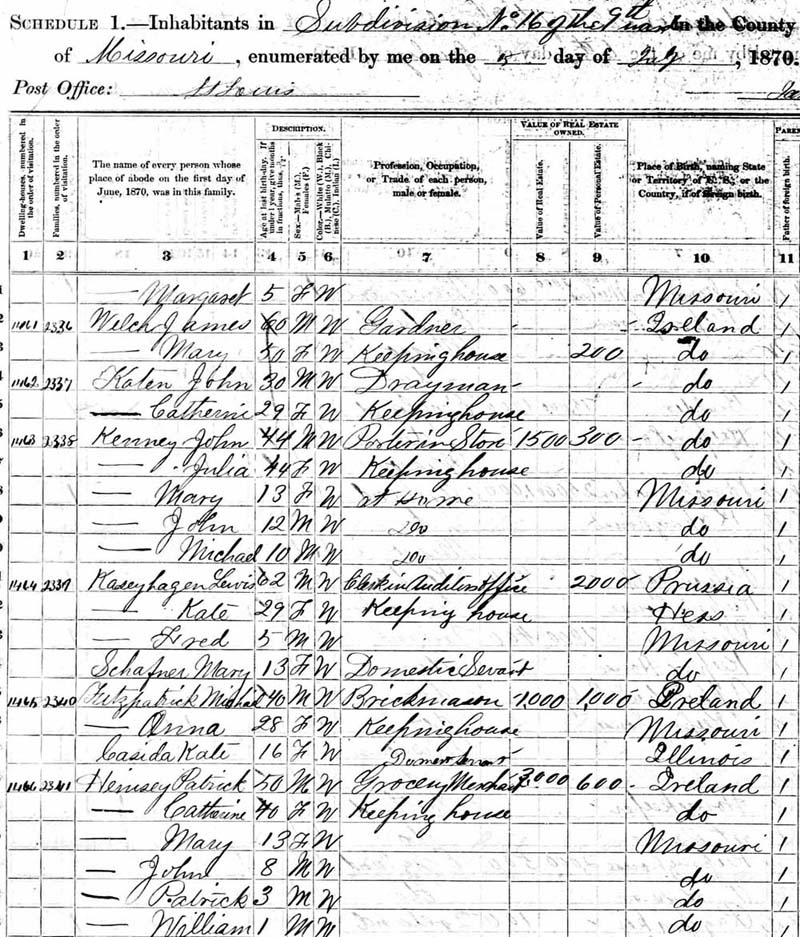 SCHEDULE 1.—Inhabitants in Subdivision No 16 of the 9th Ward In the County
of Missouri, enumerated by me on the 5 day of July, 1870.
Post Office: St Louis
DESCRIPTION. VALUE OF REAL ESTATE OWNED. PAREN
Dwelling-houses, numbered in the order of visitation.
Families, numbered in the order of visitation.
The name of every person whose place of abode on the first day of June, 1870, was in this family.
Age at last birth-day. If under 1 year, give months in fractions, thus,
Sex.—Males (M.), Females (F.)
Color.—White (W.), Black (B.), Mulatto (M.), Chinese (C.), Indian (I.)
Profession, Occupation, or Trade of each person, male or female.
Value of Real Estate.
Value of Personal Estate.
Place of Birth, naming State or Territory of U. S.; or the Country, if of foreign birth.
Father of foreign birth.
1 2 3 4 5 6 7 8 9 10 11
— Margaret 5 F W Missouri 1
1461 2336 Welch James 60 M W Gardner Ireland 1
— Mary 50 F W Keeping house 200 do 1
1462 2337 Katen John 30 M W Drayman do 1
— Catherine 29 F W Keeping house do 1
1463 2338 Kenney John 44 M W Porter in Store 1500 300 do 1
— Julia 44 F W Keeping house do 1
— Mary 13 F W at Home Missouri 1
— John 12 M W do do 1
— Michael 10 M W do do 1
1464 2339 Kaseyhagen Lewis 62 M W Clerk in Auditors office 2000 Prussia 1
— Kate 29 F W Keeping house Hess 1
— Fred 5 M W Missouri 1
Schafner Mary 13 F W Domestic Servant do 1
1465 2340 Fitzpatrick Michael 40 M W Brickmason 7,000 1,000 Ireland 1
— Anna 28 F W Keeping house Missouri 1
Casida Kate 16 F W Domest Servant Illinois 1
1466 2341 Hemsey Patrick 50 M W Grocery Merchant 3,000 600 Ireland 1
— Catherine 40 F W Keeping house do 1
— Mary 13 F W Missouri 1
— John 8 M W do 1
— Patrick 3 M W do 1
— William 1 M W do 1